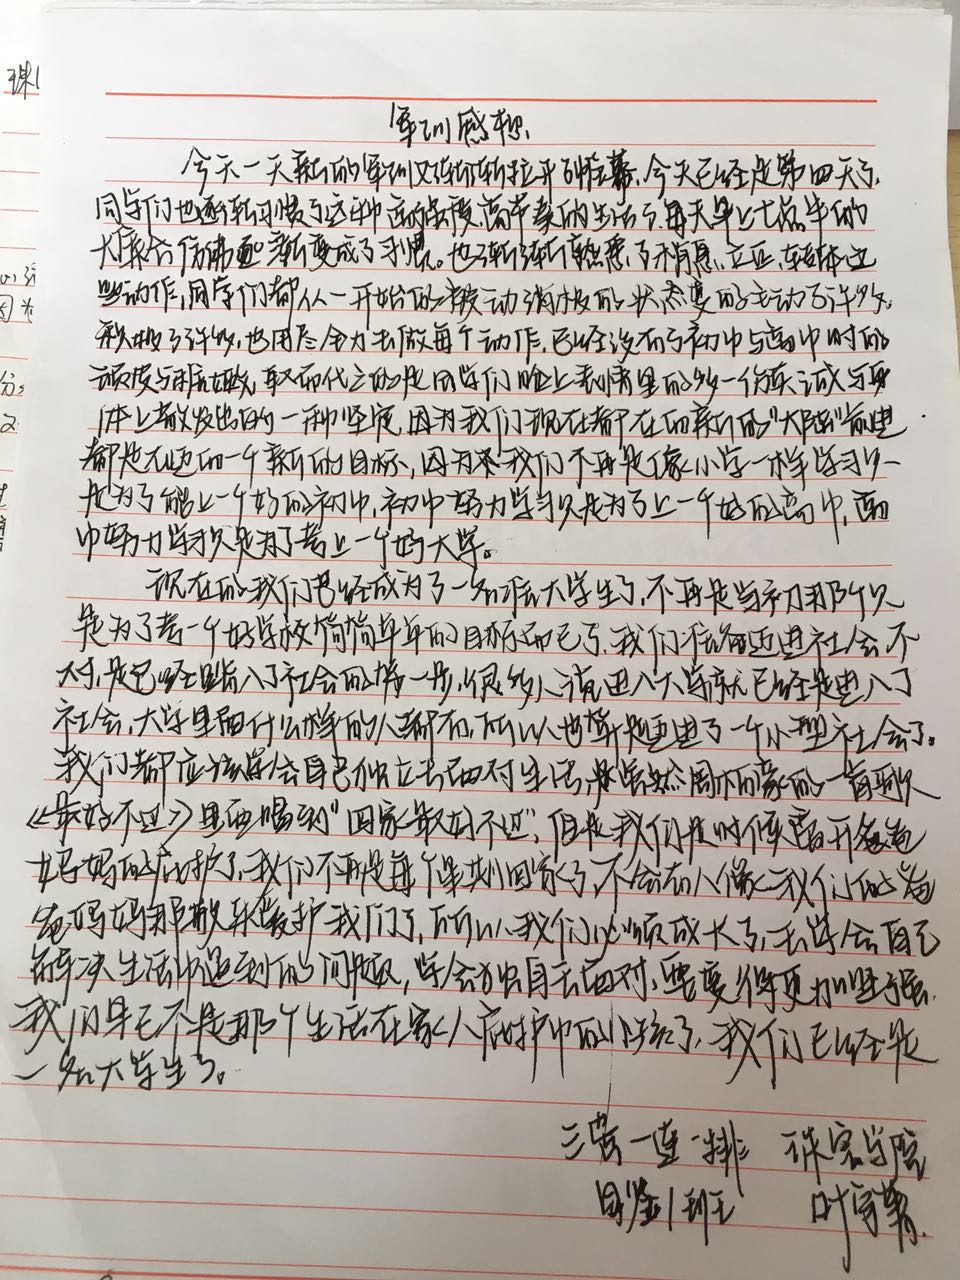 军训感想.
今天一天新的军训又渐渐拉开了帷幕.今天已经是第四天了,
同学们也逐渐习惯了这种高强度,高节奏的生活了.每天早上七点半的
大集合仿佛逐渐变成了习惯。也渐渐熟悉了稍息,立正,转体这
些动作,同学们都从一开始的被动消极的状态变的主动了许多,
积极了许多,也用尽全力去做每个动作,已经没有了初中与高中时的
颓废与 取而代之的是同学们脸上表情里的多一份真诚与身
体上散发出的一种坚定,因为我们现在都在向新的"大陆"前进
都是在迈向一个新的目标,因为我们不再是像小学一样学习只
是为了能上一个好的初中,初中努力学习只是为了上一个好的高中,高
中努力学习只是为了考上一个好大学。
现在的我们已经成为了一名大学生了,不再是当初那个只
是为了考一个好学校简简单单的目标而已了.我们 迈进社会不
对,是已经踏入了社会的第一步,很多人说进入大学就已经是进入了
社会,大学里面什么样的人都有,所以也算是更进了一个小型社会了。
我们都应该学会自己独立去面对生活,虽然周杰伦 的一首歌
《最好不过》里面唱到"回家最好不过",但是我们是时候离开爸爸
妈妈的庇护了,我们不再是每个星期回家了,不会有人像我们的爸
爸妈妈那般来爱护我们了,所以我们必须成长了,去学会自己
解决生活中遇到的问题,学会独自去面对,要变得更加坚强.
我们早已不是那个生活在家人庇护中的小孩了,我们已经是
一名大学生了。
三营一连一排 珠宝学院
国鉴1班 叶